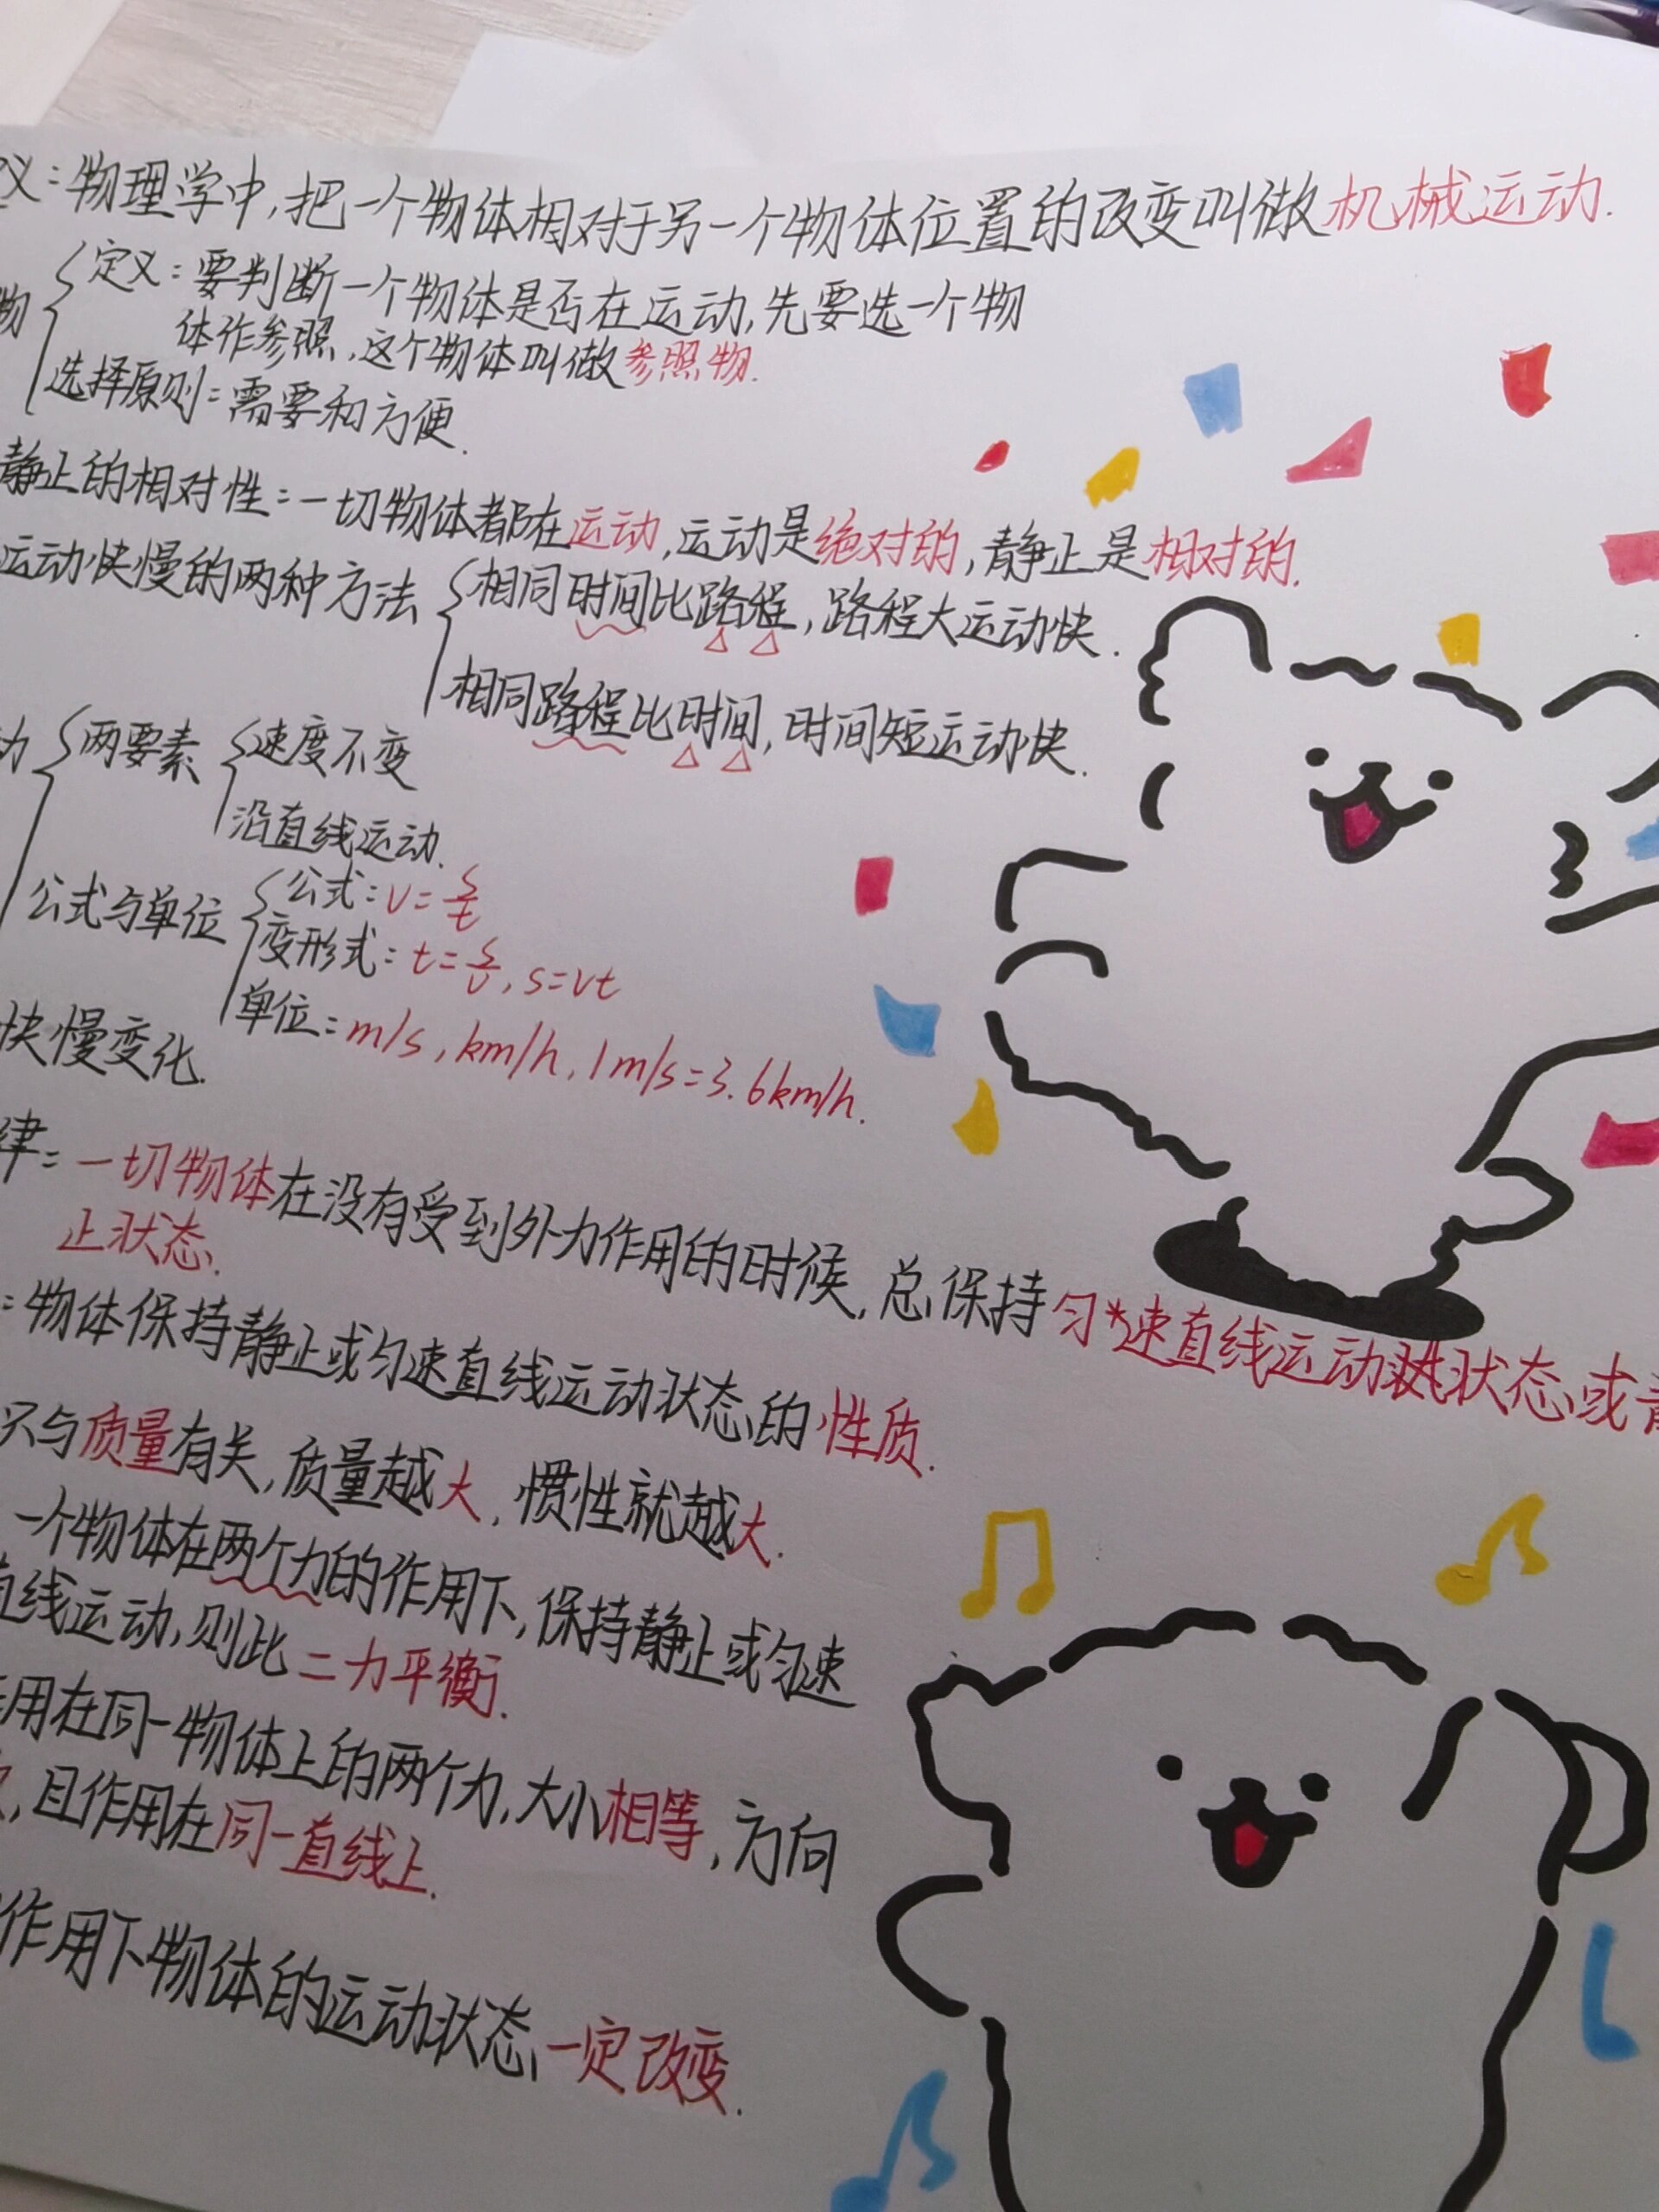 义:物理学中,把一个物体相对于另一个物体位置的改变叫做机械运动.
物
定义:要判断一个物体是否在运动,先要选一个物
体作参照,这个物体叫做参照物.
选择原则:需要和方便.
静止的相对性:一切物体都在运动,运动是绝对的,静止是相对的.
运动快慢的两种方法
相同时间比路程,路程大运动快.
相同路程比时间,时间短运动快.
动
两要素
速度不变
沿直线运动.
公式与单位
公式:v=s/t
变形式:t=s/v,s=vt
单位:m/s,km/h,1m/s=3.6km/h.
快慢变化.
律:一切物体在没有受到外力作用的时候,总保持匀速直线运动状态或静
止状态.
:物体保持静止或匀速直线运动状态的性质.
只与质量有关,质量越大,惯性就越大.
一个物体在两个力的作用下,保持静止或匀速
直线运动,则此二力平衡.
作用在同一物体上的两个力,大小相等,方向
,且作用在同一直线上.
作用下物体的运动状态一定改变.